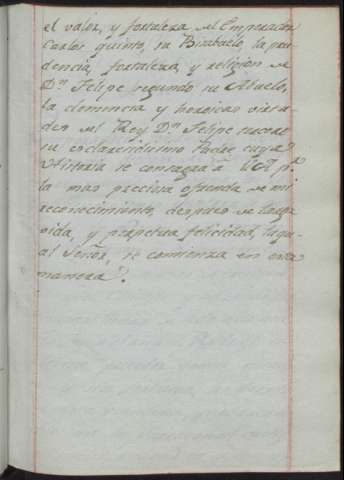 el valor, y fortaleza del Emperador
Carlos quinto, su Bisabuelo, la pru-
dencia, fortaleza, y religion de
Dⁿ. Felipe segundo su Abuelo,
la clemencia y heroicas virtu-
des del Rey Dⁿ. Felipe tercero
su esclarecidisimo Padre cuya
Historia se consagra à
la mas precisa ofrenda de mi
reconocimiento, despues de larga
vida, y perpetua felicidad,
al Señor, se comienza en esta
manera.